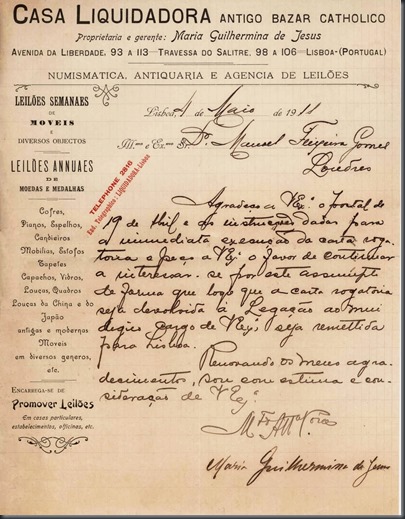 CASA LIQUIDADORA ANTIGO BAZAR CATHOLICO
Proprietaria e gerente: Maria Guilhermina de Jesus
AVENIDA DA LIBERDADE, 93 A 113—TRAVESSA DO SALITRE, 98 A 106—LISBOA-(PORTUGAL)
NUMISMATICA, ANTIQUARIA E AGENCIA DE LEILÕES
LEILÕES SEMANAES
DE
MOVEIS
E
DIVERSOS OBJECTOS
LEILÕES ANNUAES
DE
MOEDAS E MEDALHAS
Cofres,
Pianos, Espelhos,
Candieiros
Mobilias, Estofos
Tapetes
Capachos, Vidros,
Loucas, Quadros
Loucas da China e do
Japão
antigas e modernas
Moveis
em diversos generos,
etc.
ENCARREGA-SE DE
Promover Leilões
Em casas particulares,
estabelecimentos, officinas, etc.
TELEPHONE 2816
End. Telegraphico: LIQUIDADORA Lisboa
Lisboa, 4 de Maio de 1911
Ill.mo e Ex.mo Sr. Dr. Manuel Teixeira Gomes
Londres
Agradeço a V Ex.ª o postal de
19 de Abril e as instrucções dadas para
a immediata execução da carta roga-
toria e peço a V Ex.ª o favor de continuar
a interessar-se por este assumpto
de forma que logo que a carta rogatoria
seja devolvida á Legação ao mui
digno cargo de V Ex.ª seja remettida
para Lisboa.
Renovando os meus agra-
decimentos, sou com estima e con-
sideração de V Ex.ª
Maria Guilhermina de Jesus